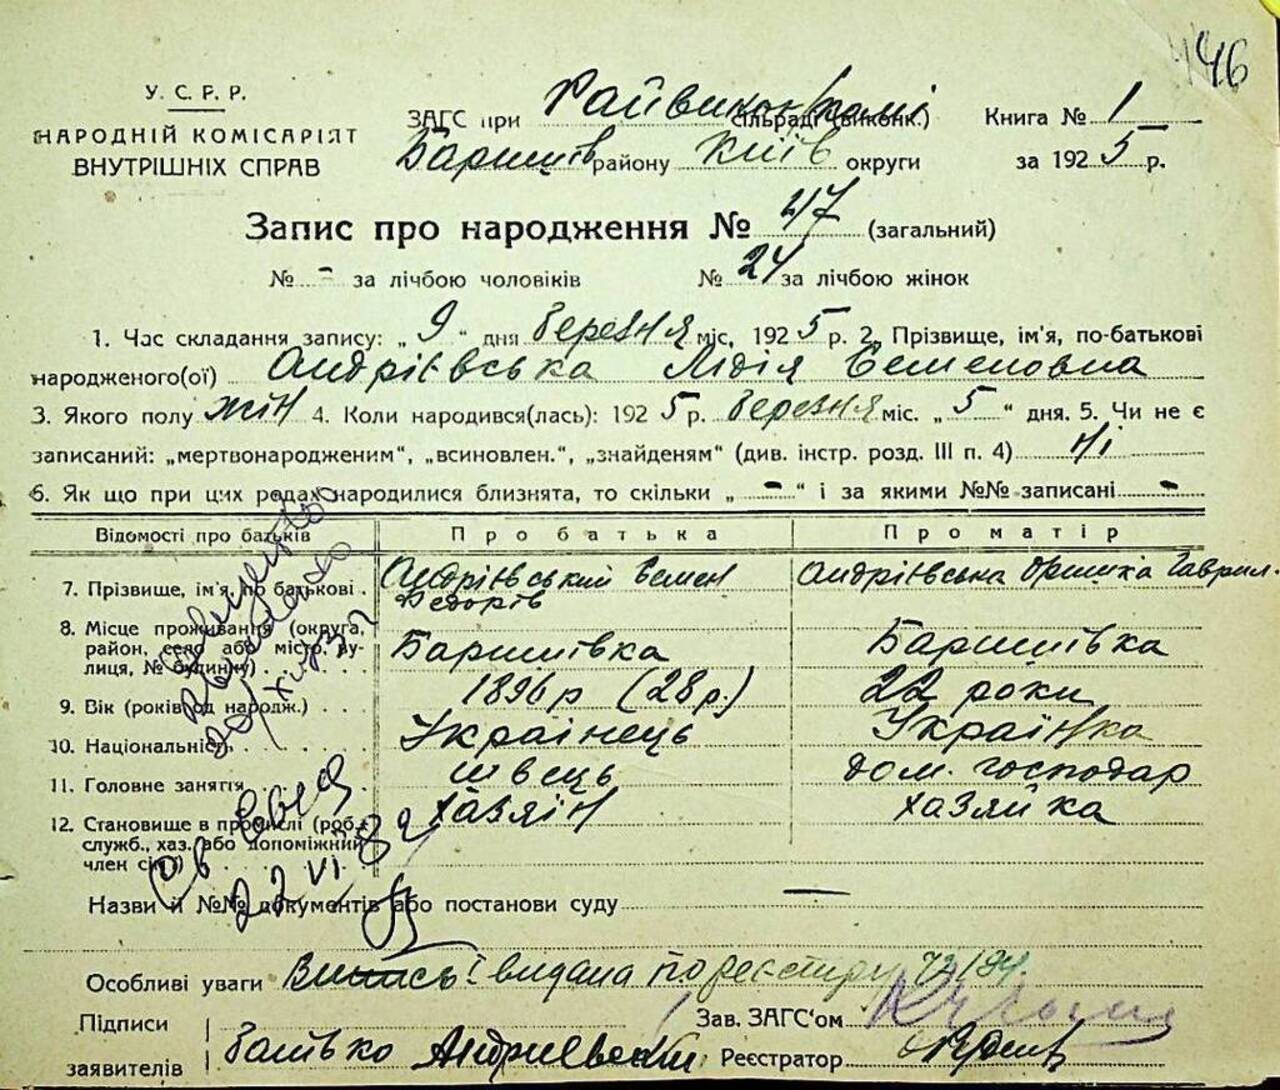 446
У. С. Р. Р.
НАРОДНІЙ КОМІСАРІЯТ
ВНУТРІШНІХ СПРАВ
ЗАГС при Райвиконкомі сільраді (виконк.)
Баришів району Київ округи
Книга № 1
за 1925 р.
Запис про народження № 47 (загальний)
№ - за лічбою чоловіків № 24 за лічбою жінок
1. Час складання запису: „ 9 “ дня березня міс. 1925 р. 2. Прізвище, ім'я, по-батькові
народженого(ої) Андрієвська Лідія Семеновна
3. Якого полу жін 4. Коли народився(лась): 1925 р. березня міс. „ 5 “ дня. 5. Чи не є
записаний: „мертвонародженим“, „всиновлен.“, „знайденям“ (див. інстр. розд. III п. 4) Ні
6. Як що при цих родах народилися близнята, то скільки „ - “ і за якими №№ записані -
Відомості про батьків Про батька Про матір
7. Прізвище, ім'я, по батькові . Андрієвський Семен Федорів Андрієвська Оришка Гаврил.
8. Місце проживання (округа,
район, село або місто, ву-
лиця, № будинку) . . . Баришівка Баришівка
9. Вік (років од народж.) . . 1896 р (28 р.) 22 роки
10. Національність . . . Українець Українка
11. Головне заняття . . . швець дом. господар
12. Становище в промислі (роб.,
служб., хаз. або допоміжний
член сім'ї) . . . хазяїн хазяйка
Св
22 VI 82
Назви й №№ документів або постанови суду —
Особливі уваги Випись видана по реєстру
Підписи
заявителів Батько Андриевский
Зав. ЗАГС'ом
Реєстратор